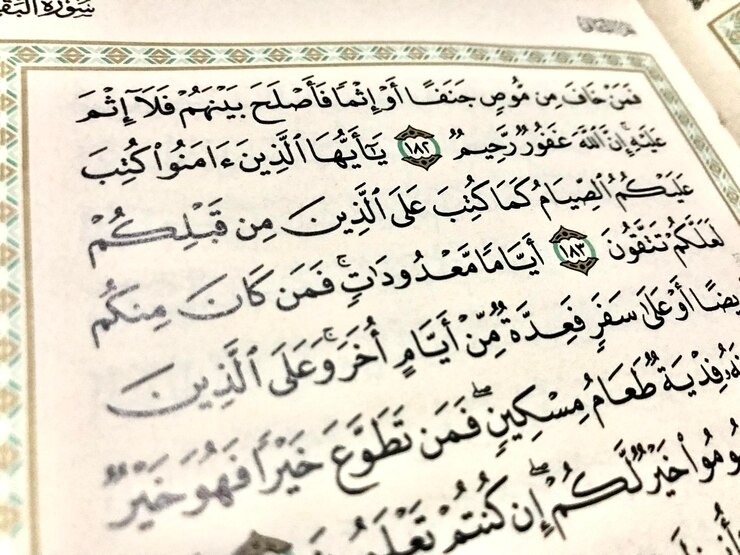 سُورَةُ البَقَ
فَمَنْ خَافَ مِن مُّوصٍ جَنَفًا أَوْ إِثْمًا فَأَصْلَحَ بَيْنَهُمْ فَلَآ إِثْمَ
عَلَيْهِ ۚ إِنَّ ٱللَّهَ غَفُورٌ رَّحِيمٌ ١٨٢ يَٰٓأَيُّهَا ٱلَّذِينَ ءَامَنُوا۟ كُتِبَ
عَلَيْكُمُ ٱلصِّيَامُ كَمَا كُتِبَ عَلَى ٱلَّذِينَ مِن قَبْلِكُمْ
لَعَلَّكُمْ تَتَّقُونَ ١٨٣ أَيَّامًا مَّعْدُودَٰتٍ ۚ فَمَن كَانَ مِنكُم
يضًا أَوْ عَلَىٰ سَفَرٍ فَعِدَّةٌ مِّنْ أَيَّامٍ أُخَرَ ۚ وَعَلَى ٱلَّذِينَ
نَهُۥ فِدْيَةٌ طَعَامُ مِسْكِينٍ ۖ فَمَن تَطَوَّعَ خَيْرًا فَهُوَ خَيْرٌ
ومُوا۟ خَيْرٌ لَّكُمْ ۖ إِن كُنتُمْ تَعْلَمُونَ